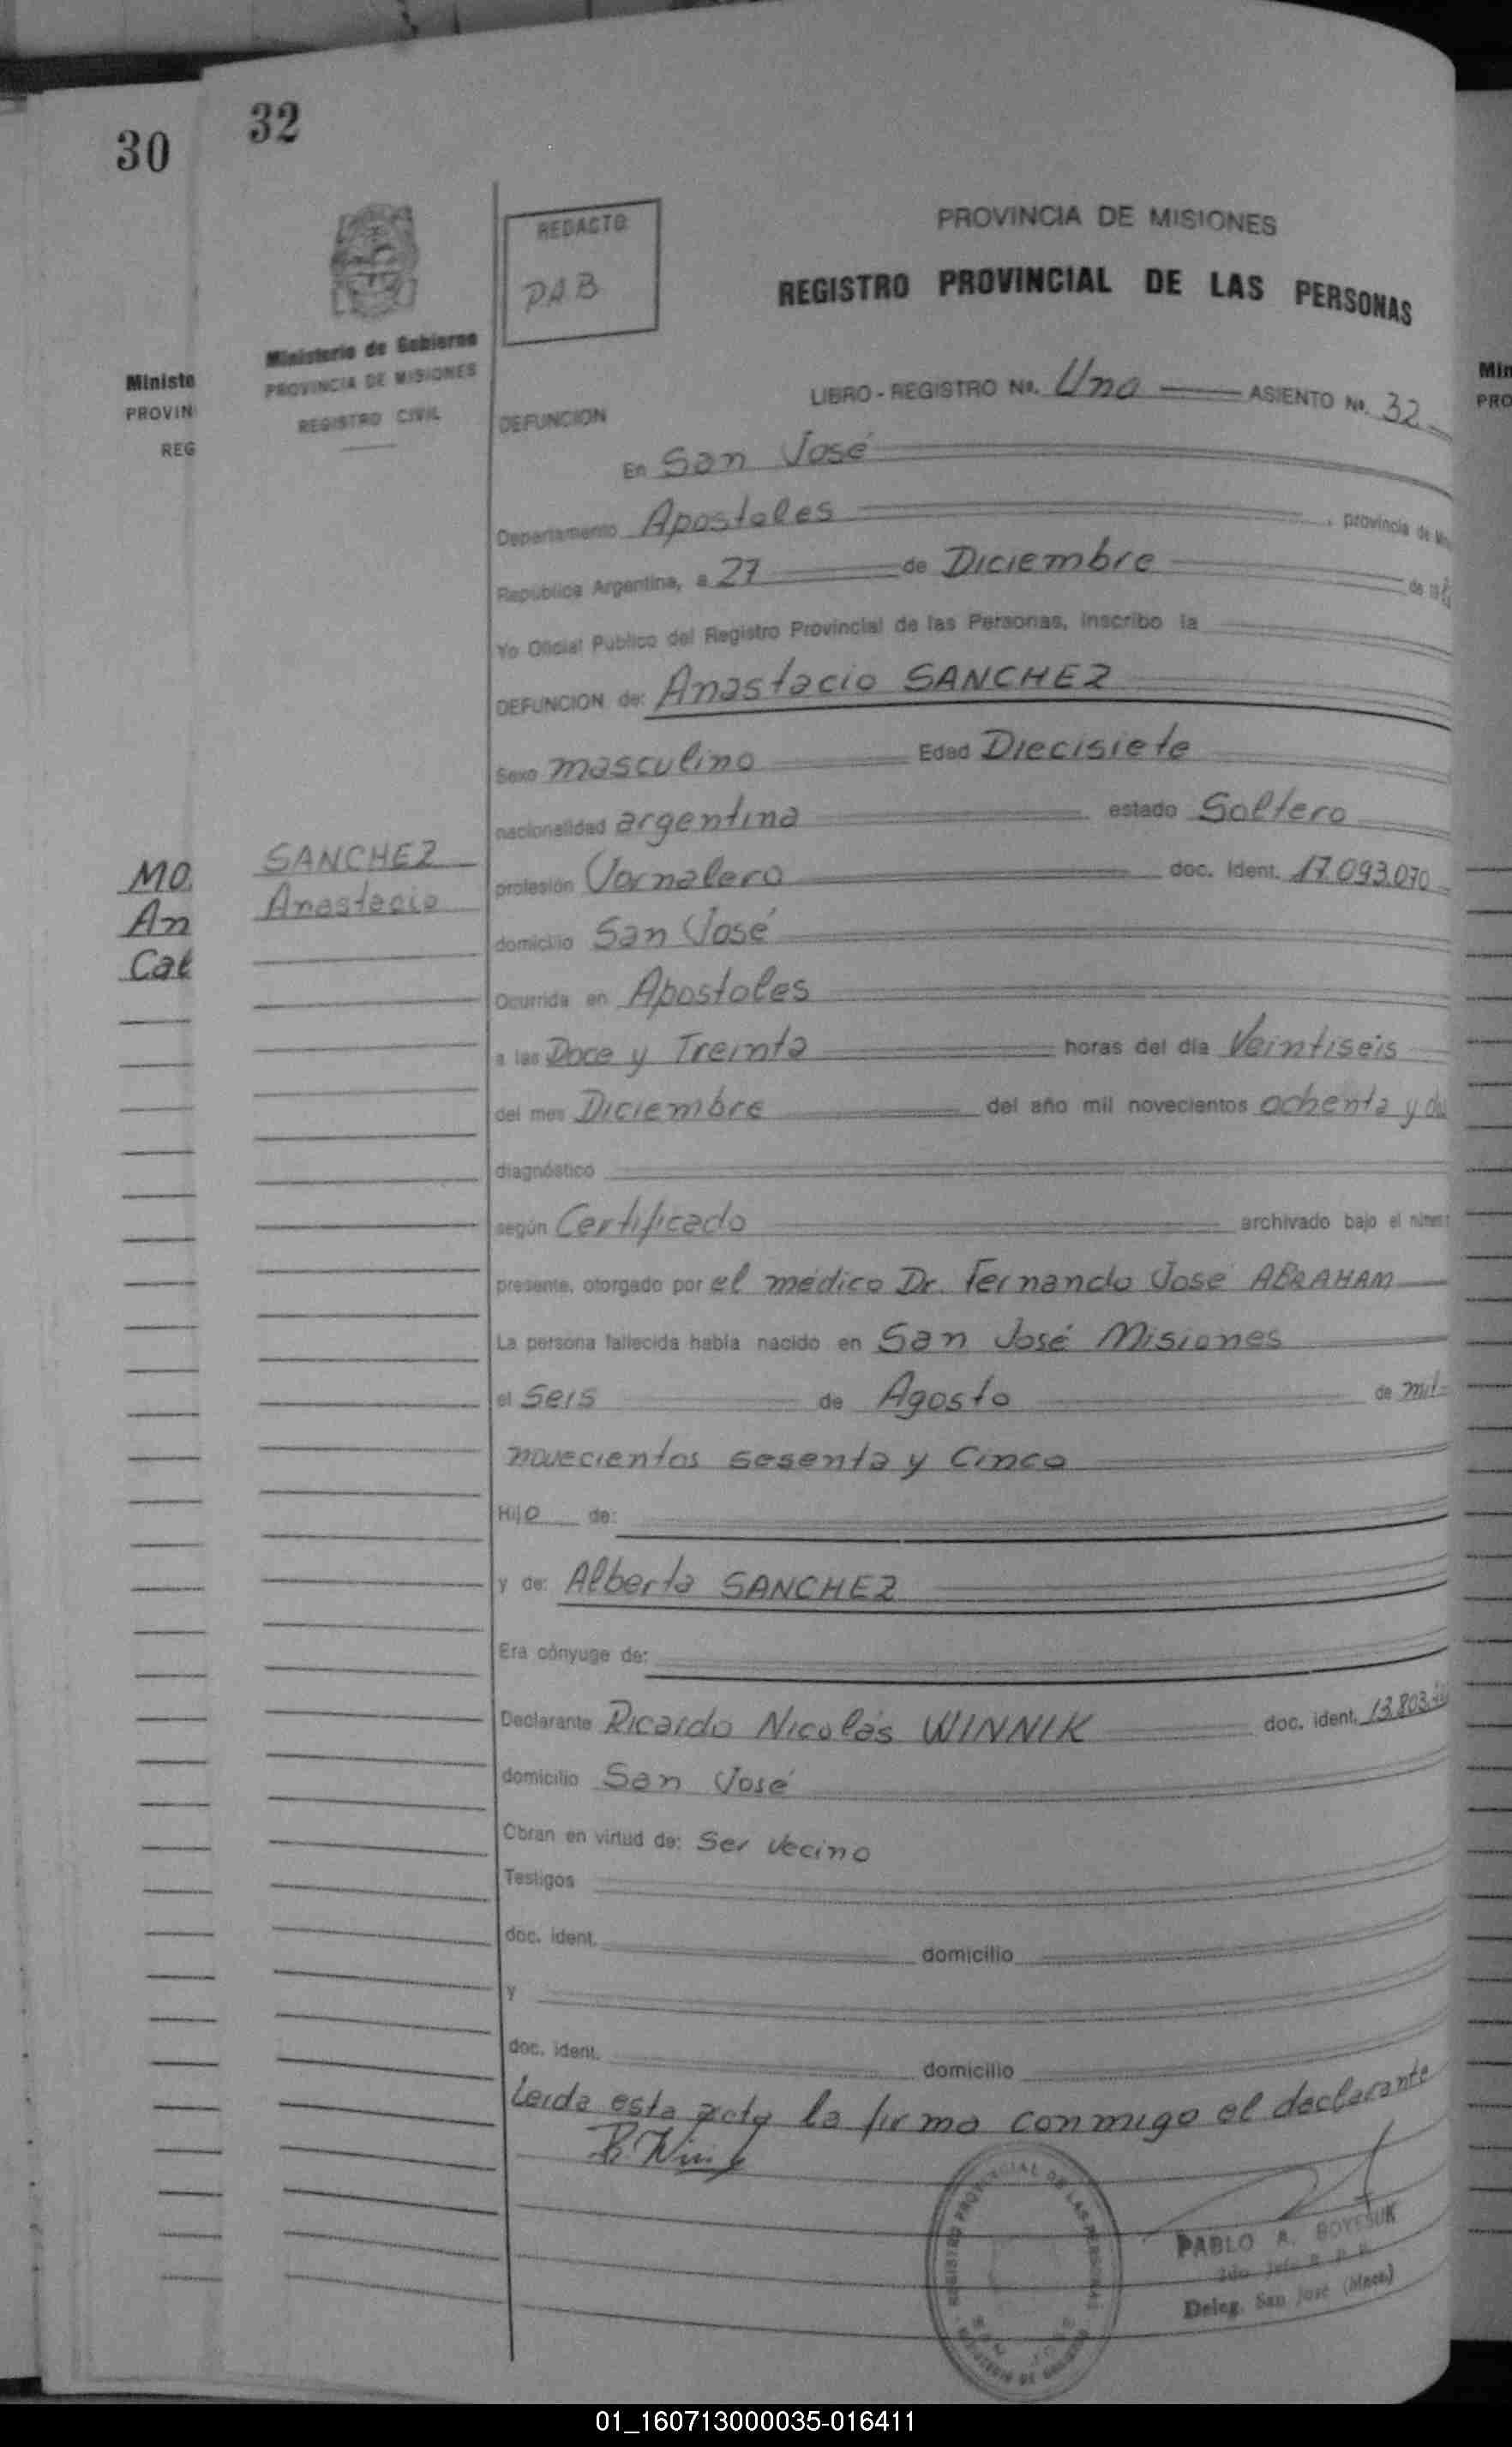 30
32
REDACTO
PAB
PROVINCIA DE MISIONES
REGISTRO PROVINCIAL DE LAS PERSONAS
Ministerio de Gobierno
PROVINCIA DE MISIONES
REGISTRO CIVIL
Ministe
PROVIN
REG
Min
PRO
LIBRO - REGISTRO Nº. Uno ASIENTO Nº. 32
DEFUNCION
En San José
Departamento Apostoles, provincia de
República Argentina, a 27 de Diciembre de 19
Yo Oficial Público del Registro Provincial de las Personas, inscribo la
DEFUNCION de: Anastacio SANCHEZ
Sexo masculino Edad Diecisiete
nacionalidad argentina estado Soltero
SANCHEZ
Anastacio
MO
An
Cat
profesión Jornalero doc. ident. 17.093.070
domicilio San José
Ocurrida en Apostoles
a las Doce y Treinta horas del día Veintiseis
del mes Diciembre del año mil novecientos ochenta y
diagnóstico
según Certificado archivado bajo el
presente, otorgado por el médico Dr. Fernando José ABRAHAM
La persona fallecida había nacido en San José Misiones
el Seis de Agosto de mil
novecientos sesenta y Cinco
Hijo de:
y de: Alberta SANCHEZ
Era cónyuge de:
Declarante Ricardo Nicolás WINNIK doc. ident. 13.803.
domicilio San José
Obran en virtud de: Ser vecino
Testigos
doc. ident. domicilio
y
doc. ident. domicilio
Leida esta acta la firma conmigo el declarante
REGISTRO PROVINCIAL DE LAS PERSONAS
SAN JOSE
MINISTERIO DE GOBIERNO
PABLO A. BOYESUK
2do Jefe R. P. P.
Deleg. San José (Mnes.)
01_160713000035-016411